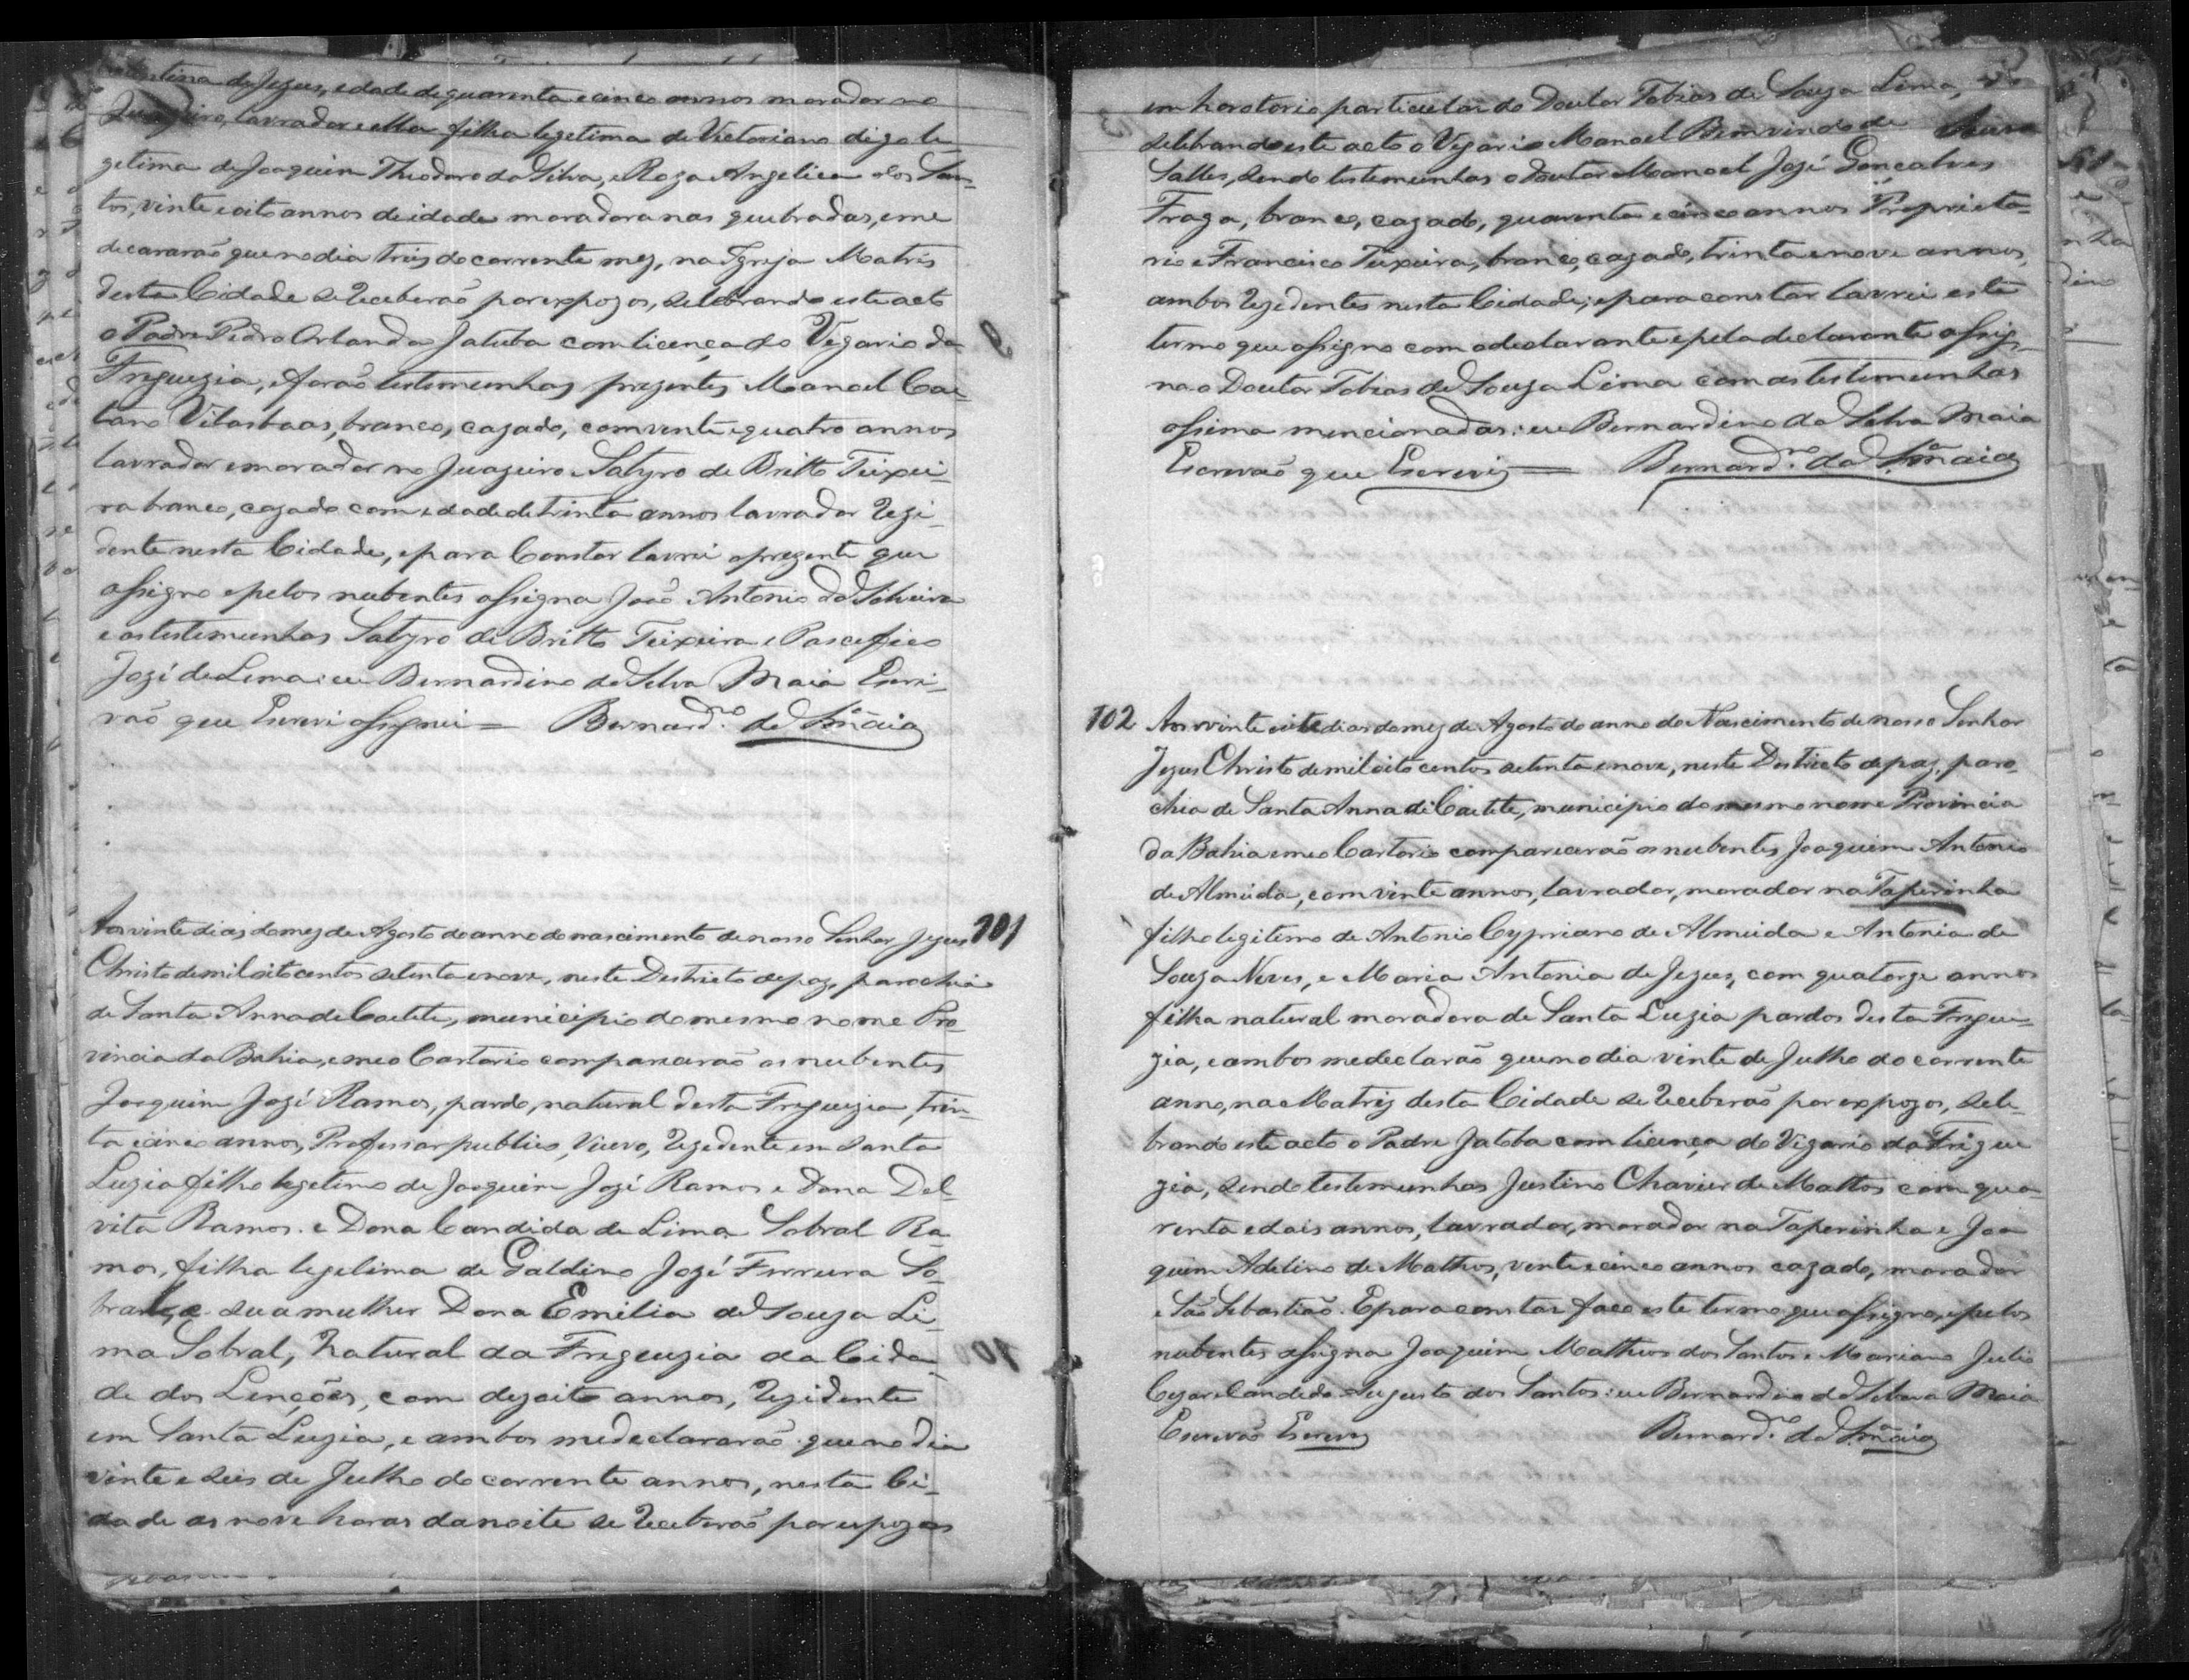 de Jezus, edade de quarenta e cinco annos morador no
Juazeiro, lavrador e Ella filha legetima de Victoriano digo le-
getima de Joaquim Theodoro da Silva, e Roza Angelica dos San-
tos, vinte e oito annos de idade moradora nas quebradas, e me
decararão que no dia tres do corrente mez, na Igreja Matris
desta Cidade se receberão por expozos, selebrando este acto
o Padre Pedro Orlando Jatuba com licença do Vegario da
Freguezia, e forão testemunhas prezentes Manoel Cae-
tano Vilasboas, branco, cazado, com vente e quatro annos
lavrador e morador no Juazeiro e Satyro de Britto Teixei-
ra branco, cazado com edade de trinta annos lavrador rezi-
dente nesta Cidade, e para Constar lavrei o prezente que
assigno e pelos nubentes assigna João Antonio da Silveira
e as testemunhas Satyro de Britto Teixeira e Pascefico
Jozé de Lima: eu Bernardino da Silva Maia Escri-
vão que Escrevi assignei = Bernard.no da S.a Maia
Aos vinte dias do mez de Agosto do anno do nascimento de nosso Senhor Jezus 101
Christo de mil oito centos setenta e nove, neste Destricto de paz, parochia
de Santa Anna de Caetite, municipio do mesmo nome Pro-
vincia da Bahia, e meo Cartorio comparecerão os nubentes
Joaquim Jozé Ramos, pardo, natural desta Freguezia, trin-
ta e cinco annos, Professor publico, Viuvo, Rezedente em Santa
Luzia filho legetimo de Joaquim Jozé Ramos e Dona Del-
vita Ramos. e Dona Candida de Lima Sobral Ra-
mos, filha legetima de Galdino Jozé Ferreira So-
bral, e sua mulher Dona Emilia de Souza Li-
ma Sobral, Natural da Freguezia da Cida-
de dos Lençoes, com dezoito annos, Rezidente
em Santa Luzia, e ambos me declararão que no dia
vinte e seis de Julho do corrente annos, nesta Ci-
dade as nove horas da noite se receberão por espozos
em horotorio particular do Doutor Tobias de Souza Lima,
selebrando este acto o Vegario Manoel Bemvindo de
Salles, sendo testemunhas o Doutor Manoel Jozé Gonçalves
Fraga, branco, cazado, quarenta e cinco annos Proprieta-
rio e Francisco Teixeira, branco, cazado, trinta e nove annos,
ambos rezedentes nesta Cidade; e para constar lavrei este
termo que assigno com o declarante e pela declarante assig-
na o Doutor Tobias de Souza Lima com as testemunhas
assima mencionadas: eu Bernardino da Silva Maia
Escrevão que Escrevi = Bernard.no da S.a Maia
102 Aos vinte e sete dias do mez de Agosto do anno do Nascimento de nosso Senhor
Jezus Christo de mil oito centos setenta e nove, neste Destricto de paz, paro-
chia de Santa Anna de Caetite, municipio do mesmo nome Provincia
da Bahia e meo Cartorio comparecerão os nubentes Joaquim Antonio
de Almeida, com vinte annos, lavrador, morador na Taperinha
filho legitimo de Antonio Cypriano de Almeida e Antonia de
Souza Neves, e Maria Antonia de Jezus, com quatorze annos
filha natural moradora de Santa Luzia pardos desta Fregue-
zia, e ambos me declarão que no dia vinte de Julho do corrente
anno, na Matriz desta Cidade se receberão por expozos, sele-
brando este acto o Padre Jatoba com licença do Vigario da Frigue
zia, sendo testemunhas Justino Chavier de Mattos com qua-
renta e dois annos, lavrador, morador na Taperinha e Joa
quim Adelino de Matheos, vente e cinco annos cazado, morador
e São Sebastião. E para constar faço este termo que assigno, e pelos
nubentes assigna Joaquim Matheos dos Santos e Mariano Julio
Cezar e Candido Augusto dos Santos: eu Bernardino da Silva Maia
Escrevão Escrevi Bernard.no da S.a Maia